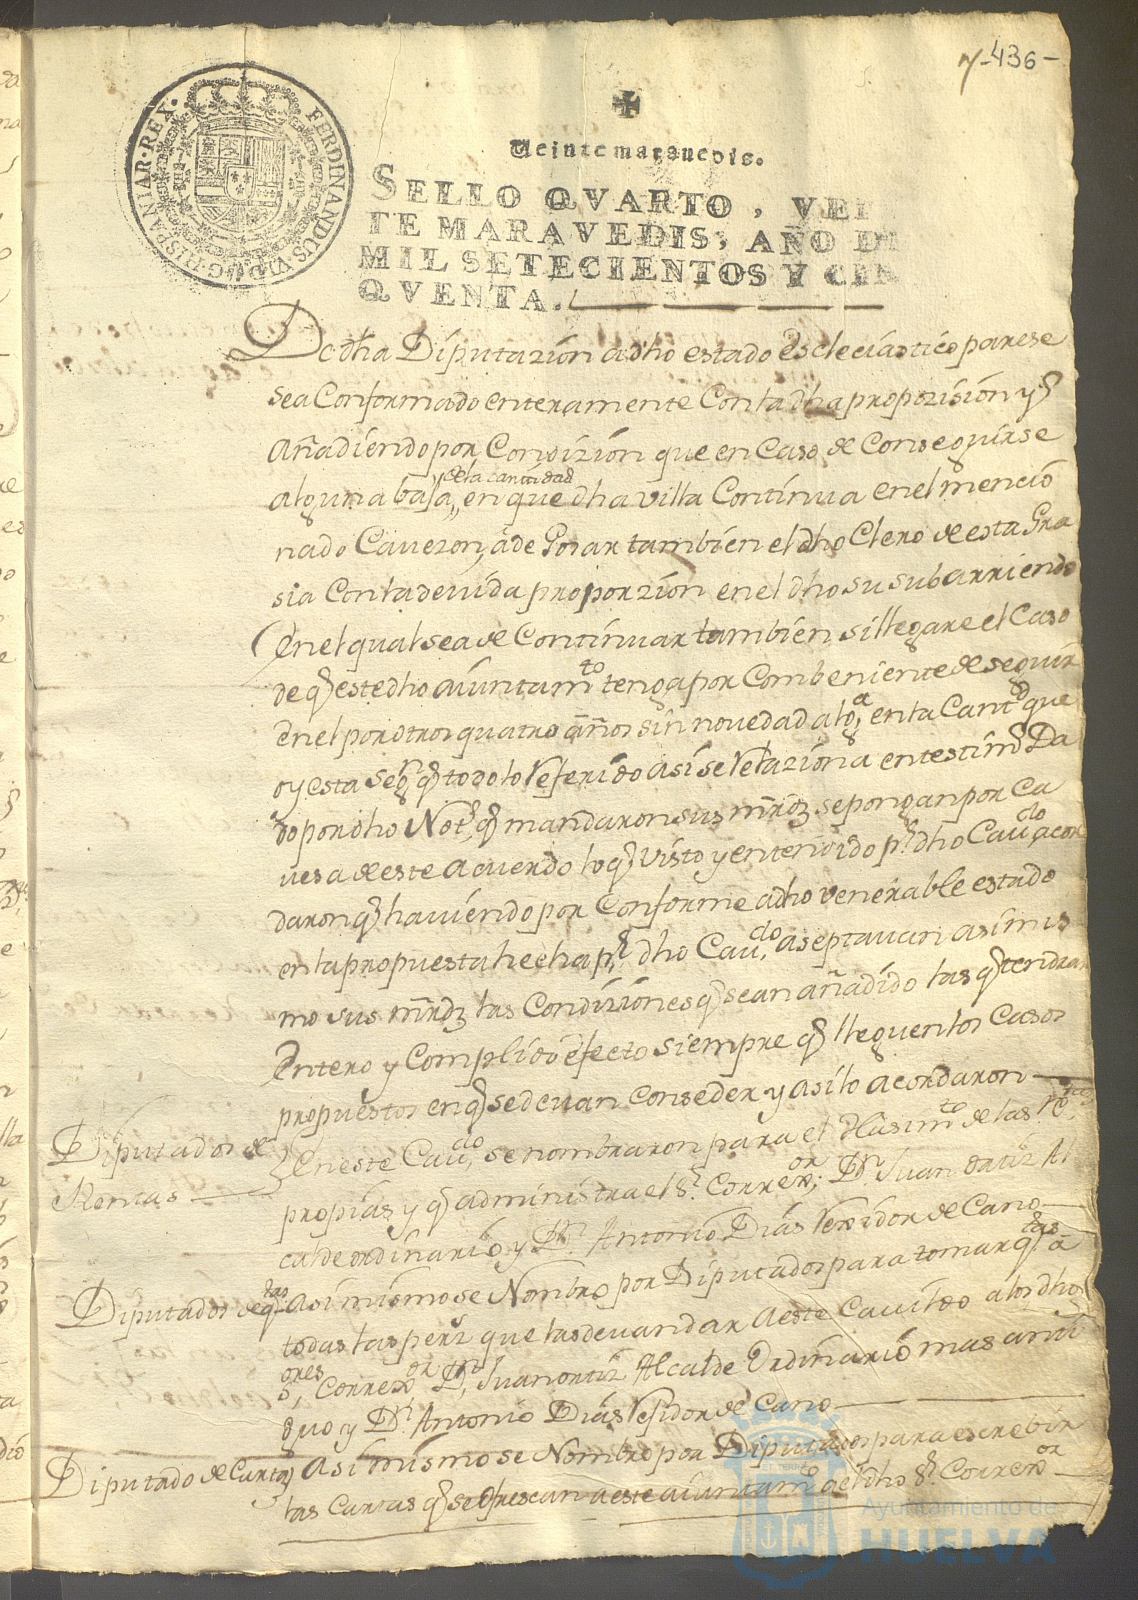 7-436-
FERDINANDUS VI D G HISPANIAR REX
Veinte marauedis.
SELLO QVARTO, VEI
TE MARAVEDIS, AÑO DE
MIL SETECIENTOS Y CIN
QVENTA.
De dha Diputazion a dho estado esclecíastico parese
sea Conformado enteramente Con la dha propozision y
Añadiendo por Condizion que en Caso de Conseguirse
y de la cantidad
alguna baja, en que dha villa Continua en el mencio
nado Cauezon, à de Gosar tambien el dho Clero de esta Gra
sia Con la deuida proporzion en el dho su subarriendo
En el qual sea de Continuar tambien si llegare el Caso
de q este dho aiuntamto tenga por Combeniente de seguir
en el por otros quatro años sin novedad alga en la Cantd que
oy esta segn q todo lo Referido asi se Relaziona en testimo Da
do por dho Noto q mandaron sus mrdz se pongan por Ca
uesa de este acuerdo lo q visto y entendido pr dho Cauдo acor
daron q haviendo por Conforme a dho venerable estado
en la propuesta hecha pr dho Caudo, aseptauan asimis
mo sus mrdz las Condiziones q sean añadido las q tendran
Entero y Complido efecto siempre q lleguen los Casos
propuestos en q se deuan Conseder y asi lo acordaron
Diputados de
Rentas
En este Caudo, se nombraron para el de las
propias y q administra el Sr Correxor, Dn Juan Ortiz Al
calde ordinario y Dn Antonio Dias Rexidor de Cano
Diputados de qtas
Asi mismo se Nombro por Diputados para tomar qtas à
todas las que las deuan dar a este Cauildo a los dhos
Sores, Correxor, Dn Juan ortiz Alcalde Ordinario mas anti
guo y Dn Antonio Dias Residor de Cano
Diputado de Cartas
Asi mismo se Nombro por Diputado para escrebir
las Cartas q se ofrescan a este aiuntamo a el dho Sr Correxor
Ayuntamiento de
HUELVA